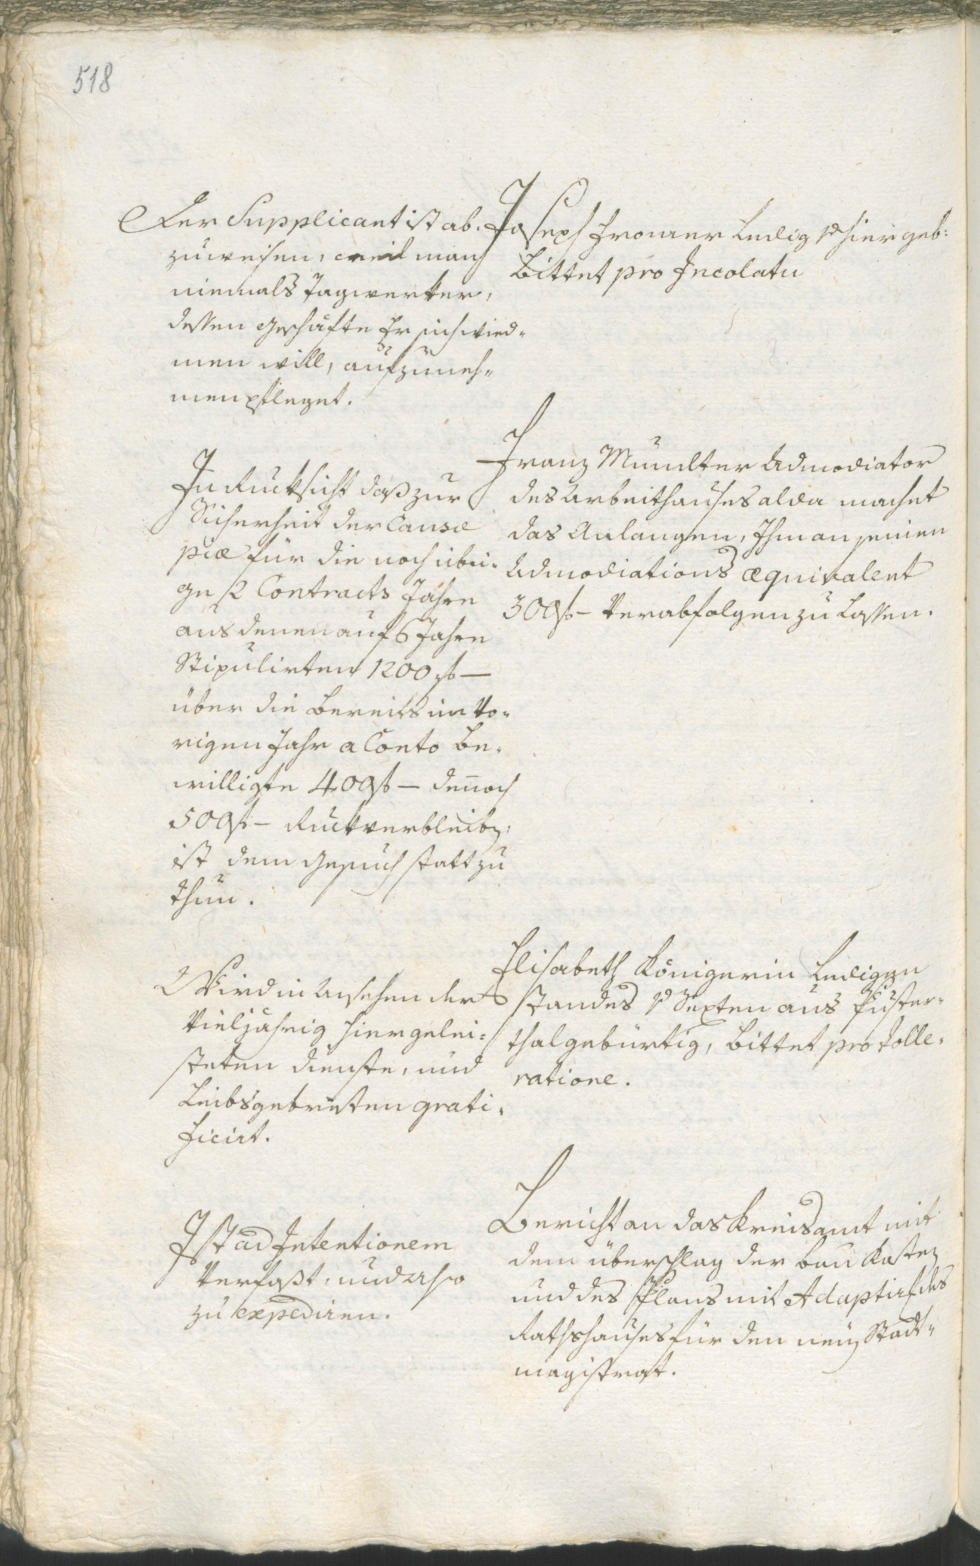 518
Der Supplicant ist ab-
zuweisen, weil man
niemals Tagwerker,
dessen Geschäfte Er sich wied-
men will, aufzuneh-
men pfleget.
Joseph Fromer Ledig hier geb:
Bittet pro Incolatu
In Rucksicht daß zur
Sicherheit der Causæ
piæ für die noch übri-
ge 2 Contracts Jahre
aus denen auf 6 Jahre
Stipulirten 1200 f –
über die bereits im vo-
rigen Jahr a Conto be-
willigte 400 f – dennoch
500 f – Ruckverbleiben,
ist dem Gesuch statt zu
thun.
Franz Mündter Admodiator
des Arbeithauses alda machet
das Anlangen, Ihm an seinen
Admodiations æquivalent
300 f – verabfolgen zu lassen.
Wird in Ansehen der
Vieljährig hier gelei-
steten Dienste, und
Leibsgebresten grati-
ficirt.
Elisabeth Königerin Ledigen
Standes Sexten aus Puster-
thal gebürtig, Bittet pro Tolle-
ratione.
Ist ad Intentionem
verfaßt, und also
zu expediren.
Bericht an das Kreisamt mit
dem überschlag der bau Kosten
und des Plans mit Adaptir des
Rathshauses für den neuen Stadt-
magistrat.